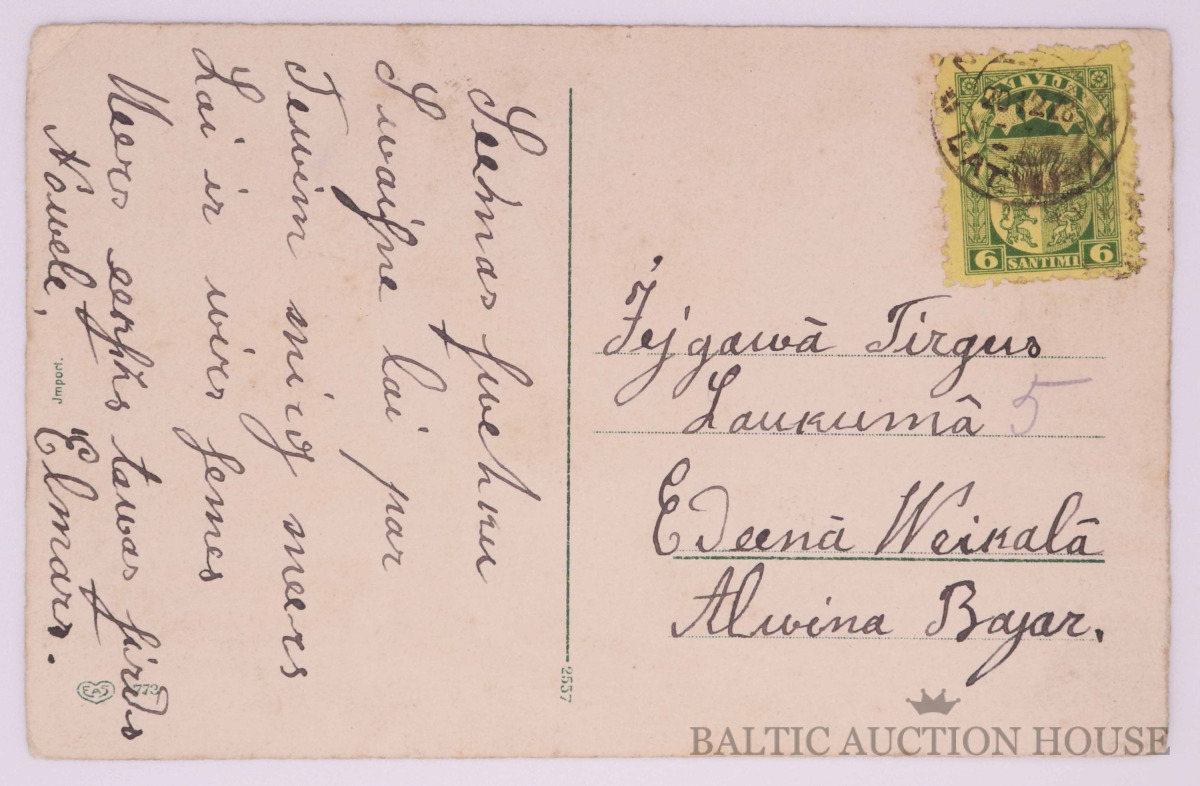 Seemas swehku
Swaiḩne lai par
Tewim mirg meers
Lai ir wirs semes
Meers eekſch tawas ſirds
Nowele,
Elmars.
Jmport.
EAS 773
2557
LATVIJA
6 SANTIMI 6
LAT
Jejgawā Tirgus
Laukumā 5
Edeenā Weikalā
Alwina Bajar.
BALTIC AUCTION HOUSE